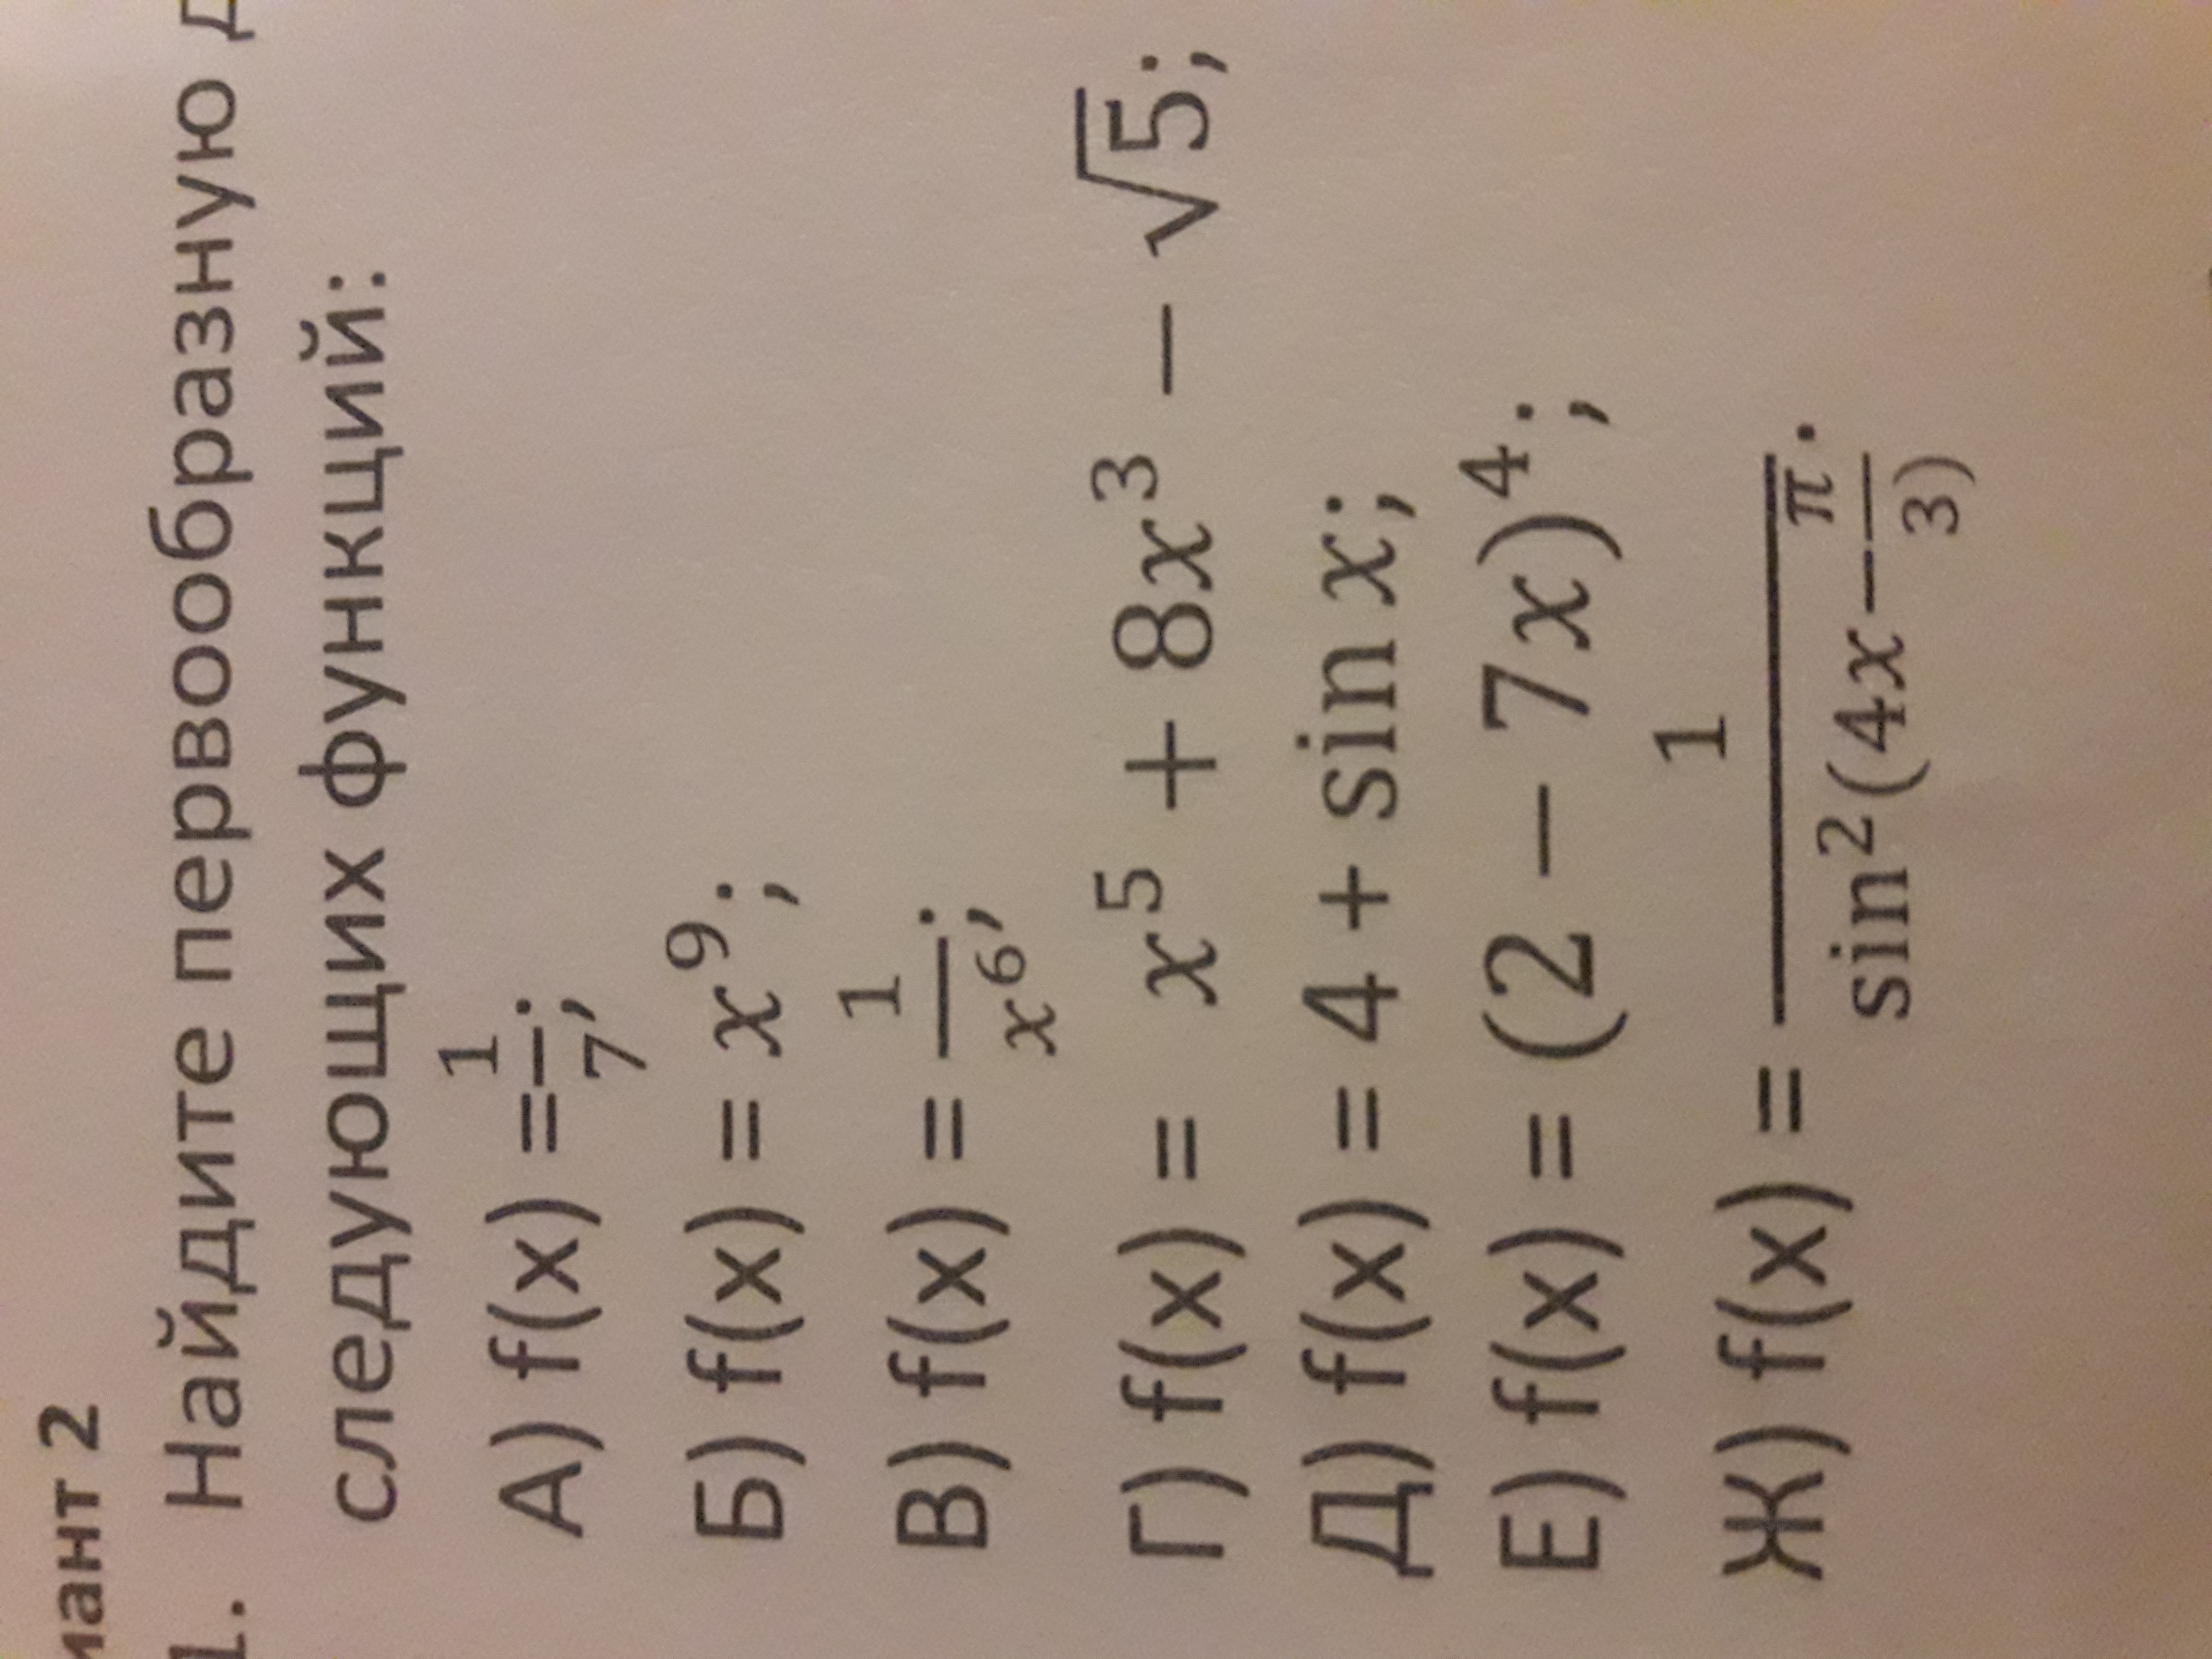 иант 2
1. Найдите первообразную д
следующих функций:
А) f(x) =1/7;
Б) f(x) = x⁹;
В) f(x) = 1/x⁶;
Г) f(x) = x⁵ + 8x³ − √5;
Д) f(x) = 4 + sin x;
Е) f(x) = (2 − 7x)⁴;
Ж) f(x) = 1/sin²(4x−π/3).